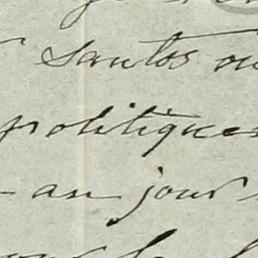 santos ou
politiques
au jour